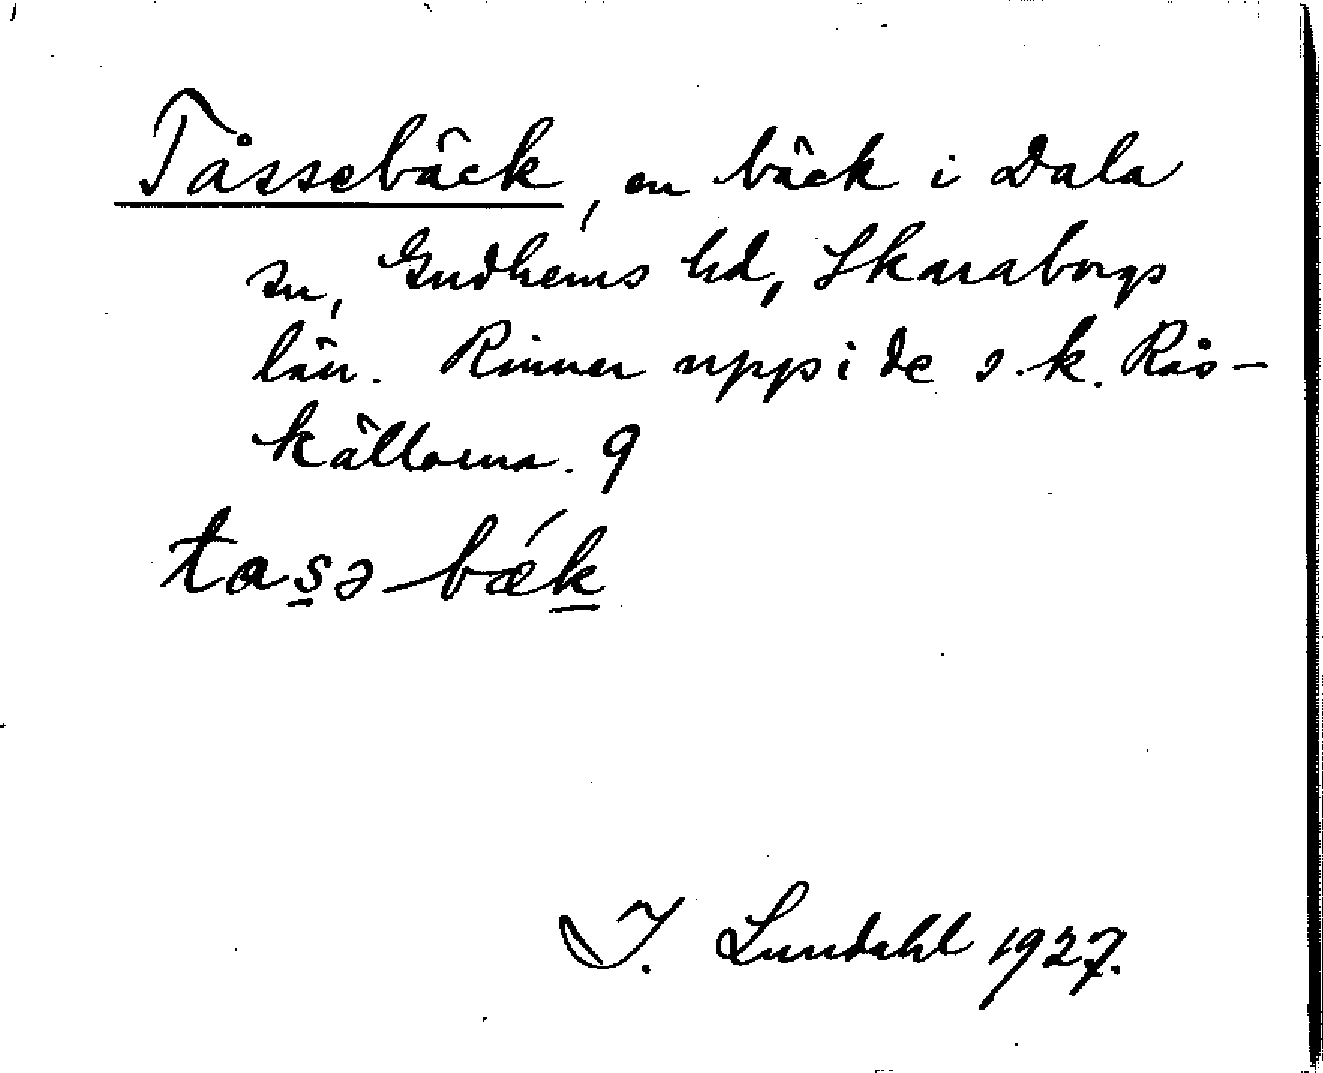 Tåssebäck, en bäck i Dala
sn, Gudhems hd, Skaraborgs
län. Rinner upp i de s.k. Rås-
källorna. 9
tas̲ə-bǽk̲
I. Lundahl 1927.